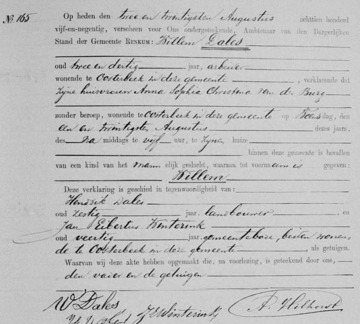 No 165
Op heden den twee en twintigsten Augustus achttien honderd
vijf-en-negentig, verscheen voor Ons ondergeteekende, Ambtenaar van den Burgerlijken
Stand der Gemeente RENKUM: Willem Dales
oud twee en dertig jaar, arbeider
wonende te Oosterbeek in deze gemeente, verklarende dat
zijne huisvrouw Anna Sophia Christina van de Burg
zonder beroep, wonende te Oosterbeek in deze gemeente op Woensdag, den
een en twintigsten Augustus dezes jaars,
des na middags te vijf ure, te zijnen huize
binnen deze gemeente is bevallen
van een kind van het mann elijk geslacht, waaraan tot voornaam is gegeven
Willem
Deze verklaring is geschied in tegenwoordigheid van:
Hendrik Dales
oud zestig jaar, landbouwer en
Jan Eibertus Winterink
oud veertig jaar, gemeentebode, beiden wonen
de te Oosterbeek in deze gemeente als getuigen.
Waarvan wij deze akte hebben opgemaakt die, na voorlezing, is geteekend door ons,
den vader en de getuigen
W Dales
J E Winterink